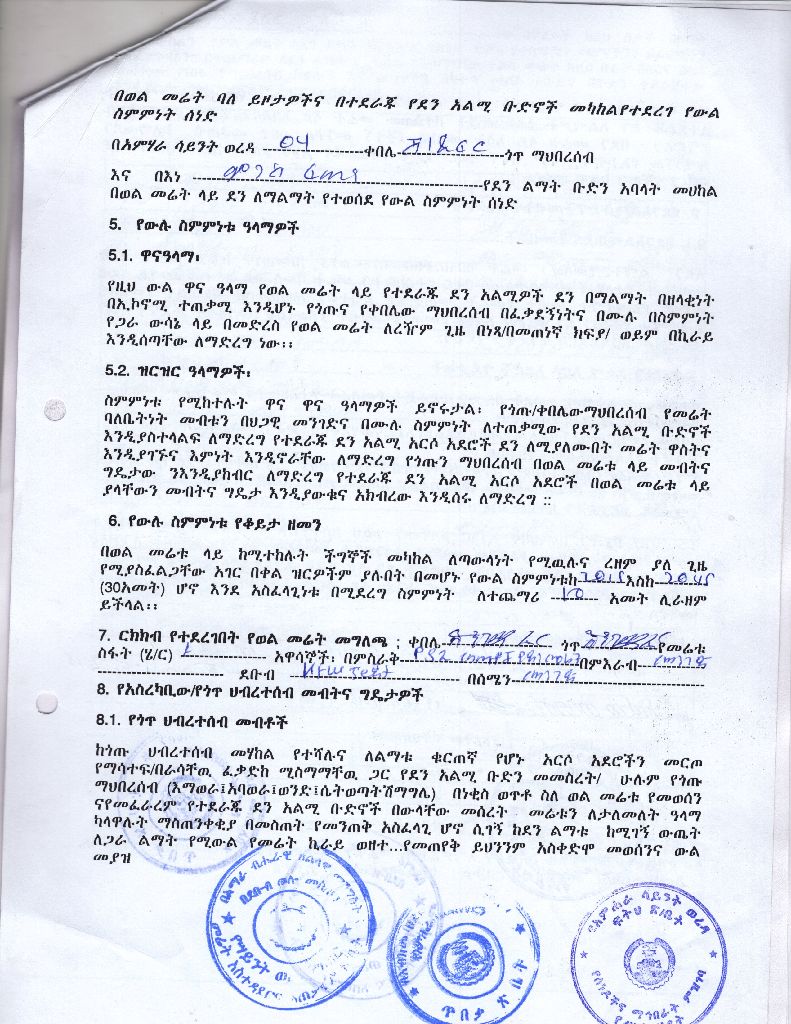 በወል መሬት ባለ ይዞታዎችና በተደራጁ የደን አልሚ ቡድኖች መካከልየተደረገ የውል
ስምምነት ሰነድ
በአምሃራ ሳይንት ወረዳ 04 ቀበሌ ጎጥ ማህበረሰብ
እና በእነ የደን ልማት ቡድን አባላት መሀከል
በወል መሬት ላይ ደን ለማልማት የተወሰደ የውል ስምምነት ሰነድ
5. የውሉ ስምምነቱ ዓላማዎች
5.1. ዋናዓላማ፡
የዚህ ውል ዋና ዓላማ የወል መሬት ላይ የተደራጁ ደን አልሚዎች ደን በማልማት በዘላቂነት
በኢኮኖሚ ተጠቃሚ እንዲሆኑ የጎጡና የቀበሌው ማህበረሰብ በፈቃደኝነትና በሙሉ በስምምነት
የጋራ ውሳኔ ላይ በመድረስ የወል መሬት ለረዥም ጊዜ በነጻ/በመጠነኛ ክፍያ/ ወይም በኪራይ
እንዲሰጣቸው ለማድረግ ነው፡፡
5.2. ዝርዝር ዓላማዎች፡
ስምምነቱ የሚከተሉት ዋና ዋና ዓላማዎች ይኖሩታል፡ የጎጡ/ቀበሌውማህበረሰብ የመሬት
ባለቤትነት መብቱን በህጋዊ መንገድና በሙሉ ስምምነት ለተጠቃሚው የደን አልሚ ቡድኖች
እንዲያስተላልፍ ለማድረግ የተደራጁ ደን አልሚ አርሶ አደሮች ደን ለሚያለሙበት መሬት ዋስትና
እንዲያገኙና እምነት እንዲኖራቸው ለማድረግ የጎጡን ማህበረሰብ በወል መሬቱ ላይ መብትና
ግዴታው ንእንዲያከብር ለማድረግ የተደራጁ ደን አልሚ አርሶ አደሮች በወል መሬቱ ላይ
ያላቸውን መብትና ግዴታ እንዲያውቁና አክብረው እንዲሰሩ ለማድረግ ።
6. የውሉ ስምምነቱ የቆይታ ዘመን
በወል መሬቱ ላይ ከሚተከሉት ችግኞች መካከል ለጣውላነት የሚዉሉና ረዘም ያለ ጊዜ
የሚያስፈልጋቸው አገር በቀል ዝርዎችም ያሉበት በመሆኑ የውል ስምምነቱከ 2015 እስከ 2045
(30አመት) ሆኖ እንደ አስፈላጊነቱ በሚደረግ ስምምነት ለተጨማሪ 10 አመት ሊራዘም
ይችላል፡፡
7. ርክክብ የተደረገበት የወል መሬት መግለጫ ; ቀበሌ ጎጥ የመሬቱ
ስፋት (ሄ/ር) አዋሳኞች፡ በምስራቅ በምእራብ
ደቡብ በሰሜን
8. የአስረካቢው/የጎጥ ህብረተሰብ መብትና ግዴታዎች
8.1. የጎጥ ህብረተሰብ መብቶች
ከጎጡ ህብረተሰብ መሃከል የተሻሉና ለልማቱ ቁርጠኛ የሆኑ አርሶ አደሮችን መርጦ
የማሳተፍ/በራሳቸዉ ፈቃድከ ሚስማማቸዉ ጋር የደን አልሚ ቡድን መመስረት/ ሁሉም የጎጡ
ማህበረሰብ (እማወራ፤አባወራ፤ወንድ፤ሴትወጣትሽማግሌ) በነቂስ ወጥቶ ስለ ወል መሬቱ የመወሰን
ናየመፈራረም የተደራጁ ደን አልሚ ቡድኖች በውላቸው መሰረት መሬቱን ለታለመለት ዓላማ
ካላዋሉት ማስጠንቀቂያ በመስጠት የመንጠቅ አስፈላጊ ሆኖ ሲገኝ ከደን ልማቱ ከሚገኝ ውጤት
ለጋራ ልማት የሚውል የመሬት ኪራይ ወዘተ...የመጠየቅ ይህንንም አስቀድሞ መወሰንና ውል
መያዝ
የአምሐራ ሳይንት ወረዳ
ፍትህ ጽ/ቤት
ጥበቃ ጽ ቤት